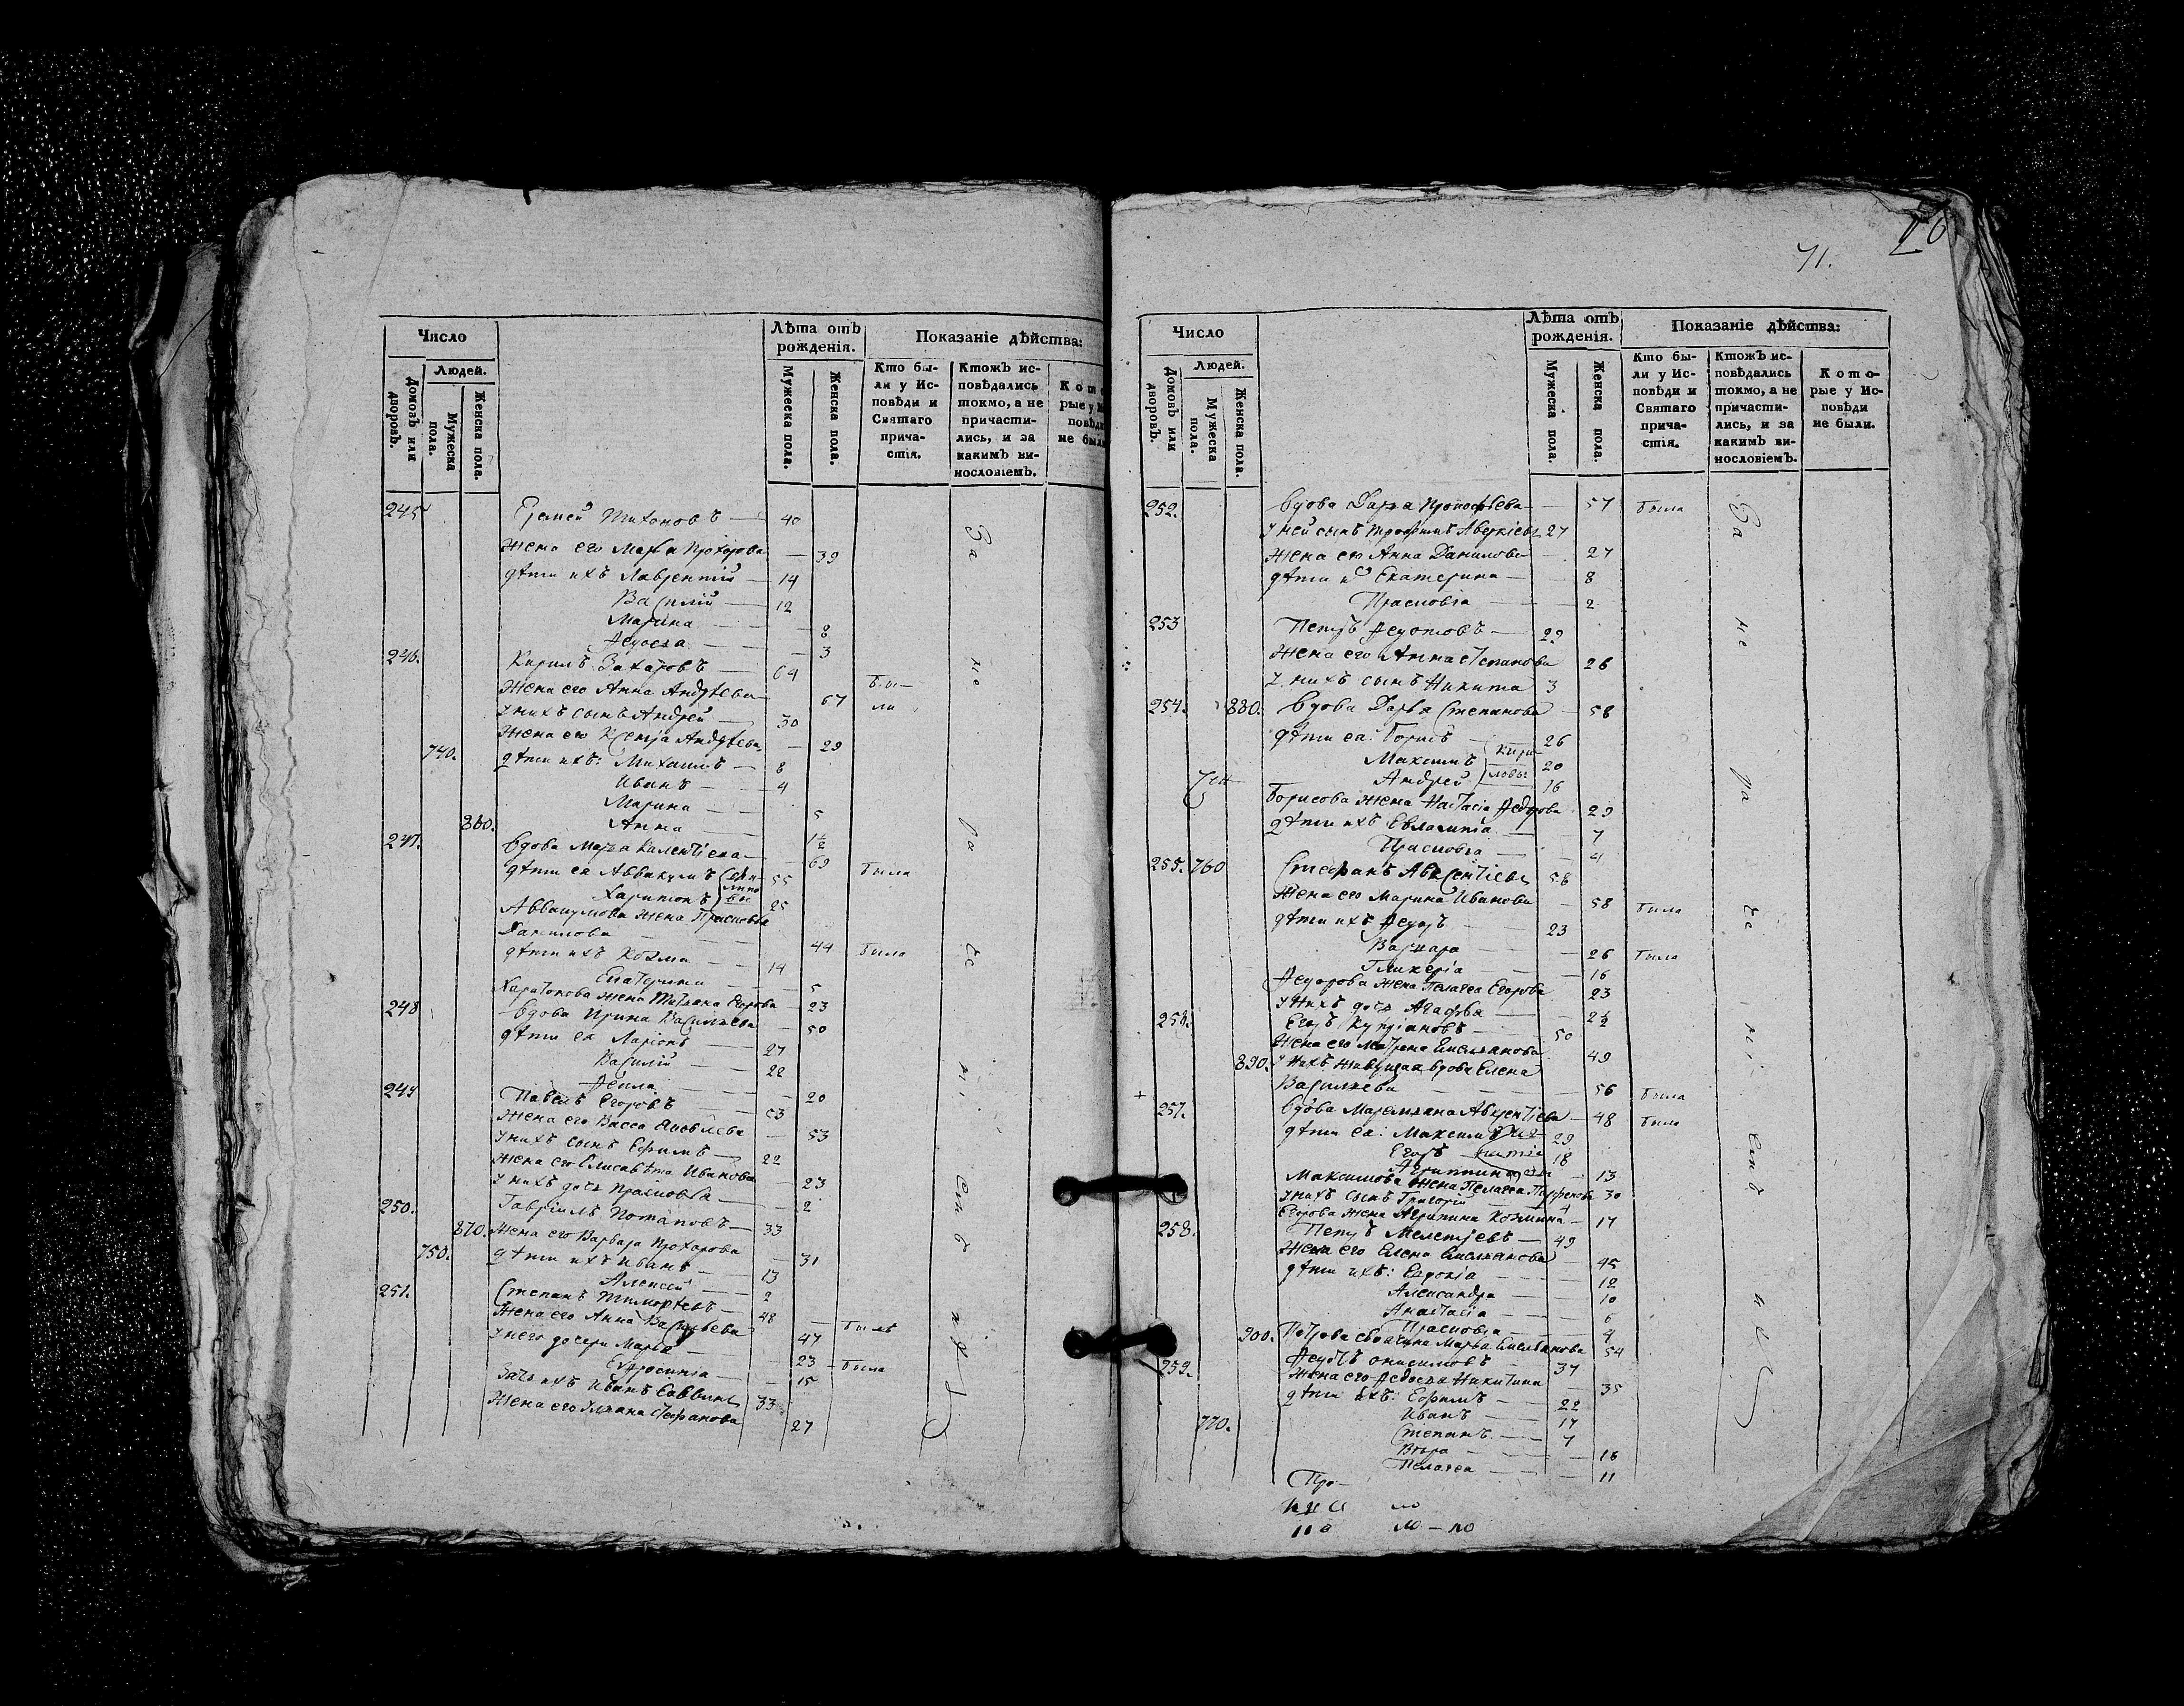 Число
Людей.
Домовъ или дворовъ.
Мужеска пола.
Женска пола.
Лѣта отъ рожденія.
Мужеска пола.
Женска пола.
Показаніе дѣйства:
Кто бы-
ли у Ис-
повѣди и
Святаго
прича-
стія.
Ктожъ ис-
повѣдались
токмо, а не
причасти-
лись, и за
какимъ ви-
нословіемъ.
Кото
рые у И
повѣди
не были
245 Еремей Тихоновъ — 40
Жена его Марѳа Прохорова — 39
дѣти ихъ Лаврентій — 14
Василій — 12
Марина — 8
Ѳедосья — 3
246. Кирилъ Захаровъ — 64 бы-
Жена его Анна Андрѣева — 67 ли
У нихъ сынъ Андрей — 30
Жена его Ксенія Андрѣева — 29
740. дѣти ихъ: Михаилъ — 8
Иванъ — 4
Марина — 5
860. Анна — 1½
247. Вдова Марѳа — 69 была
дѣти ея Аввакумъ 55
Харитонъ 25
Аввакумова жена Прасковья
Данилова — 44 была
дѣти ихъ Козма — 14
Екатерина — 5
Харитонова жена Татьяна Егорова — 23
248 Вдова Ирина Васильева — 50
дѣти ея Ларіонъ — 27
Василій — 22
Ѳекла — 20
249 Павелъ Егоровъ — 53
Жена его Васса Яковлева — 53
У нихъ сынъ Ефимъ — 22
Жена его Елисавѣта Иванова 23
У нихъ дочь Прасковья — 2
250. Гавріилъ Потаповъ — 33
870. Жена его Варвара Прохорова — 31
750. дѣти ихъ Иванъ — 13
Алексей — 2
251. Степанъ Тимофѣевъ — 48 — былъ
Жена его Анна Васильева 47
У него дочери Марья — 23 — была
Ефросинія — 15
Зять ихъ Иванъ Саввинъ 33
Жена его Ульяна Стефанова 27
За не ра че ні емъ ихъ
71.
Число
Людей.
Домовъ или дворовъ.
Мужеска пола.
Женска пола.
Лѣта отъ рожденія.
Мужеска пола.
Женска пола.
Показаніе дѣйства:
Кто бы-
ли у Ис-
повѣди и
Святаго
прича-
стія.
Ктожъ ис-
повѣдались
токмо, а не
причасти-
лись, и за
какимъ ви-
нословіемъ.
Кото-
рые у Ис-
повѣди
не были.
252. Вдова Дарья Прокофьева — 57 была
У ней сынъ Трофимъ Аверкіевъ 27
Жена его Анна Данилова — 27
дѣти ихъ Екатерина — 8
Прасковіа — 2
253 Петръ Ѳедотовъ — 29
Жена его Анна Степанова 26
У нихъ сынъ Никита 3
254. 880. Вдова Дарья Степанова — 58
дѣти еа: Борисъ 26
Максимъ 20 Кири-
Андрей 16 ловы
Борисова жена Настасіа Ѳедорова 29
дѣти ихъ Евлампіа — 7
Прасковіа — 4
255. 760 Стефанъ Авксентіевъ 58
Жена его Марина Иванова — 58 была
дѣти ихъ Ѳедоръ — 23
Варвара — 26 была
Гликеріа — 16
Ѳедорова жена Пелагеа Егорова 23
У нихъ дочь Агафья — 2½
256. Егоръ Купріановъ — 50
Жена его Матрена Емельянова 49
890. У нихъ живущая вдова Елена
Васильева — 56 была
257. Вдова Маремьяна Авксентіева — 48 была
дѣти еа: Максимъ 29
Егоръ 18
Агриппина — 13
Максимова жена Пелагеа Парфенова 30
У нихъ сынъ Григорій — 4
Егорова жена Агрипина Козмина — 17
258. Петръ Мелетіевъ — 49
Жена его Елена Емельянова 45
дѣти ихъ: Евдокіа — 12
Александра — 10
Анастасіа — 6
Прасковіа — 4
900. Петрова своячина Марѳа Емельянова 54
259. Ѳедотъ Онисимовъ — 37
Жена его Ѳедосья Никитина — 35
дѣти ихъ: Ефимъ — 22
Иванъ — 17
770. Степанъ — 7
Вѣра — 16
Пелагеа — 11
За не ра че ні емъ ихъ
Про-